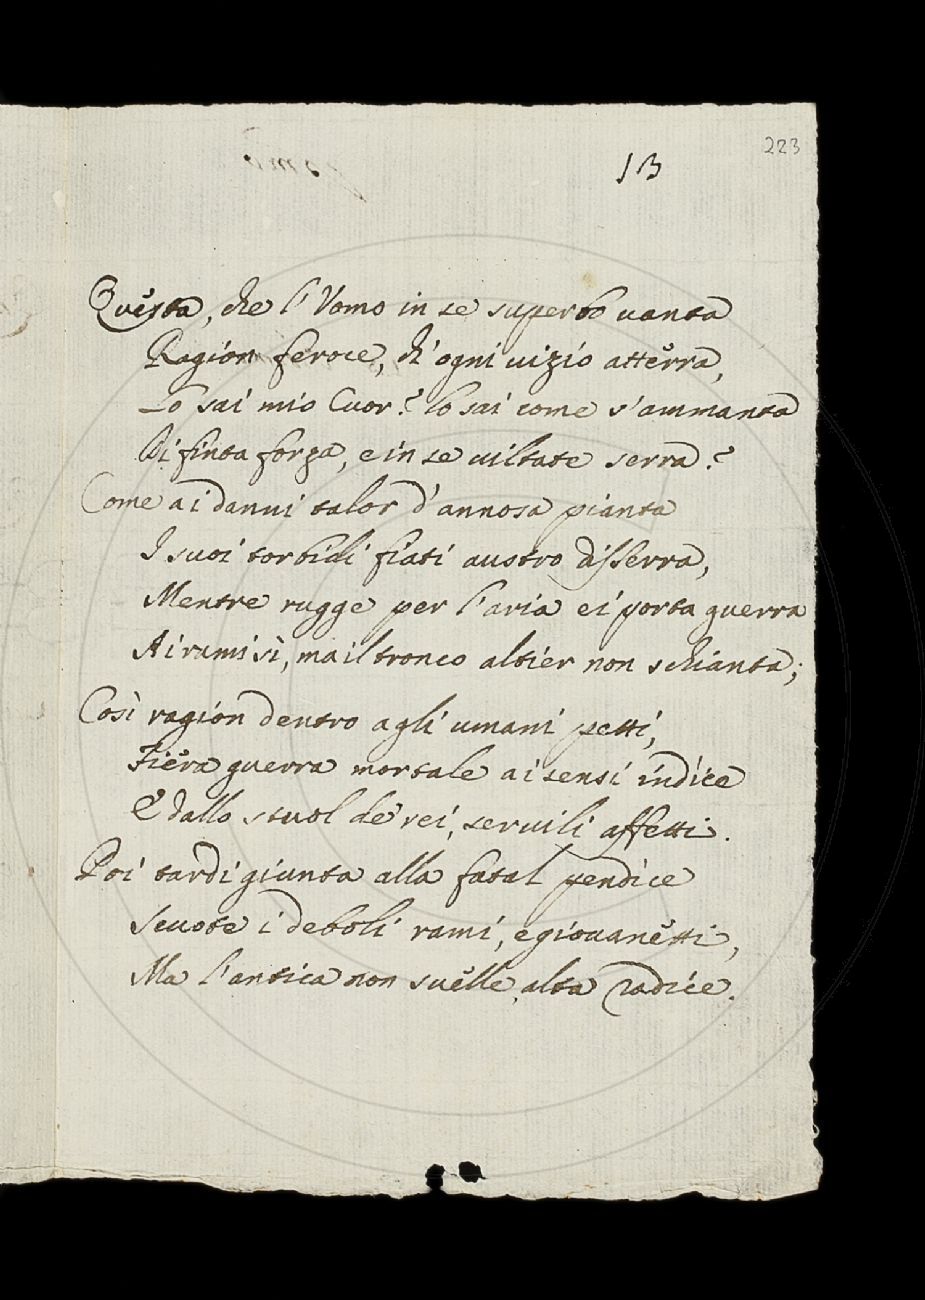 223
13
Questa, che l'Vomo in se superbo uanta
Ragion feroce, ch'ogni uizio attèrra,
Lo sai mio Cuor? lo sai come s'ammanta
Di finta forza, e in se uiltate serra?
Come ai danni talor d'annosa pianta
I suoi torbidi fiati austro disserra,
Mentre rugge per l'aria ei porta guerra
Ai rami sì, ma il tronco altier non schianta;
Così ragion dentro agli umani petti,
Fièra guerra mortale ai sensi indice
E dallo stuol de' rei, seruili affetti.
Poi tardi giunta alla fatal pendice
Scuote i deboli rami, e giouanètti,
Ma l'antica non suèlle, alta radice.